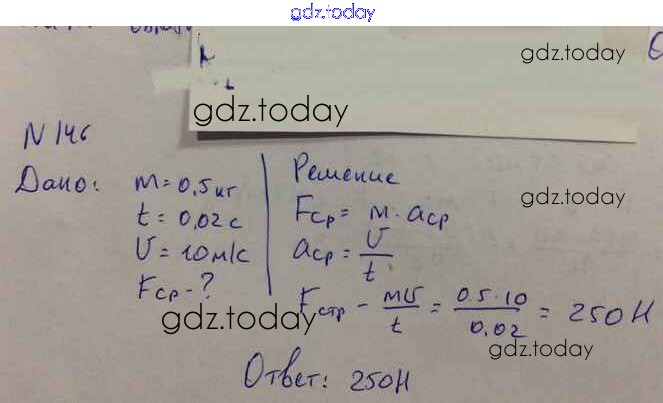 gdz.today
gdz.today
gdz.today
N 146
Дано: m = 0,5 кг
t = 0,02 с
υ = 10 м/с
Fср - ?
Решение
Fср = m · aср
aср = υ/t
Fстр - mυ/t = 0.5 · 10/0.02 = 250 Н
gdz.today
gdz.today
gdz.today
Ответ: 250Н